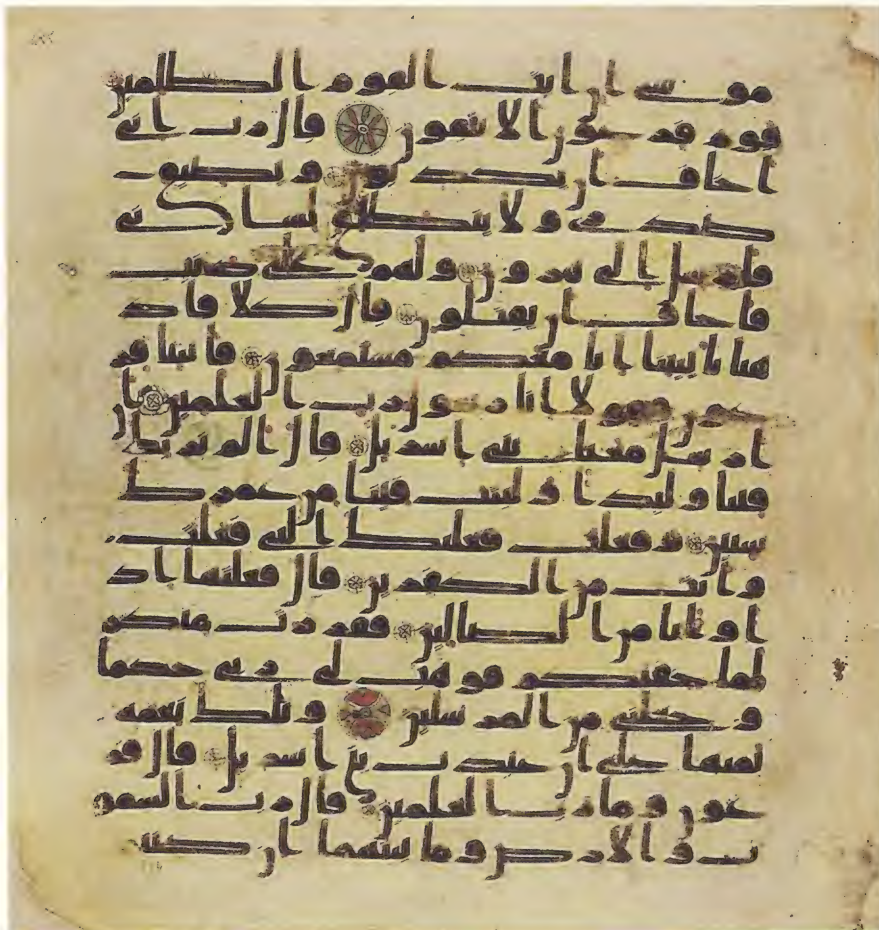 موسى ان ائت القوم الظلمين
قوم فرعون الا يتقون قال رب انى
اخاف ان يكذبون ويضيق
صدرى ولا ينطلق لسانى
فارسل الى هرون ولهم على ذنب
فاخاف ان يقتلون قال كلا فاذ
هبا بايتنا انا معكم مستمعون فاتيا فر
عون فقولا انا رسول رب العلمين ان
ارسل معنا بنى اسريل قال الم نربك
فينا وليدا ولبثت فينا من عمرك
سنين وفعلت فعلتك التى فعلت
وانت من الكفرين قال فعلتها اذ
ا وانا من الضالين ففررت منكم
لما خفتكم فوهب لى ربى حكما
وجعلنى من المرسلين وتلك نعمه
تمنها على ان عبدت بنى اسريل قال فر
عون وما رب العلمين قال رب السمو
ت والارض وما بينهما ان كنتم